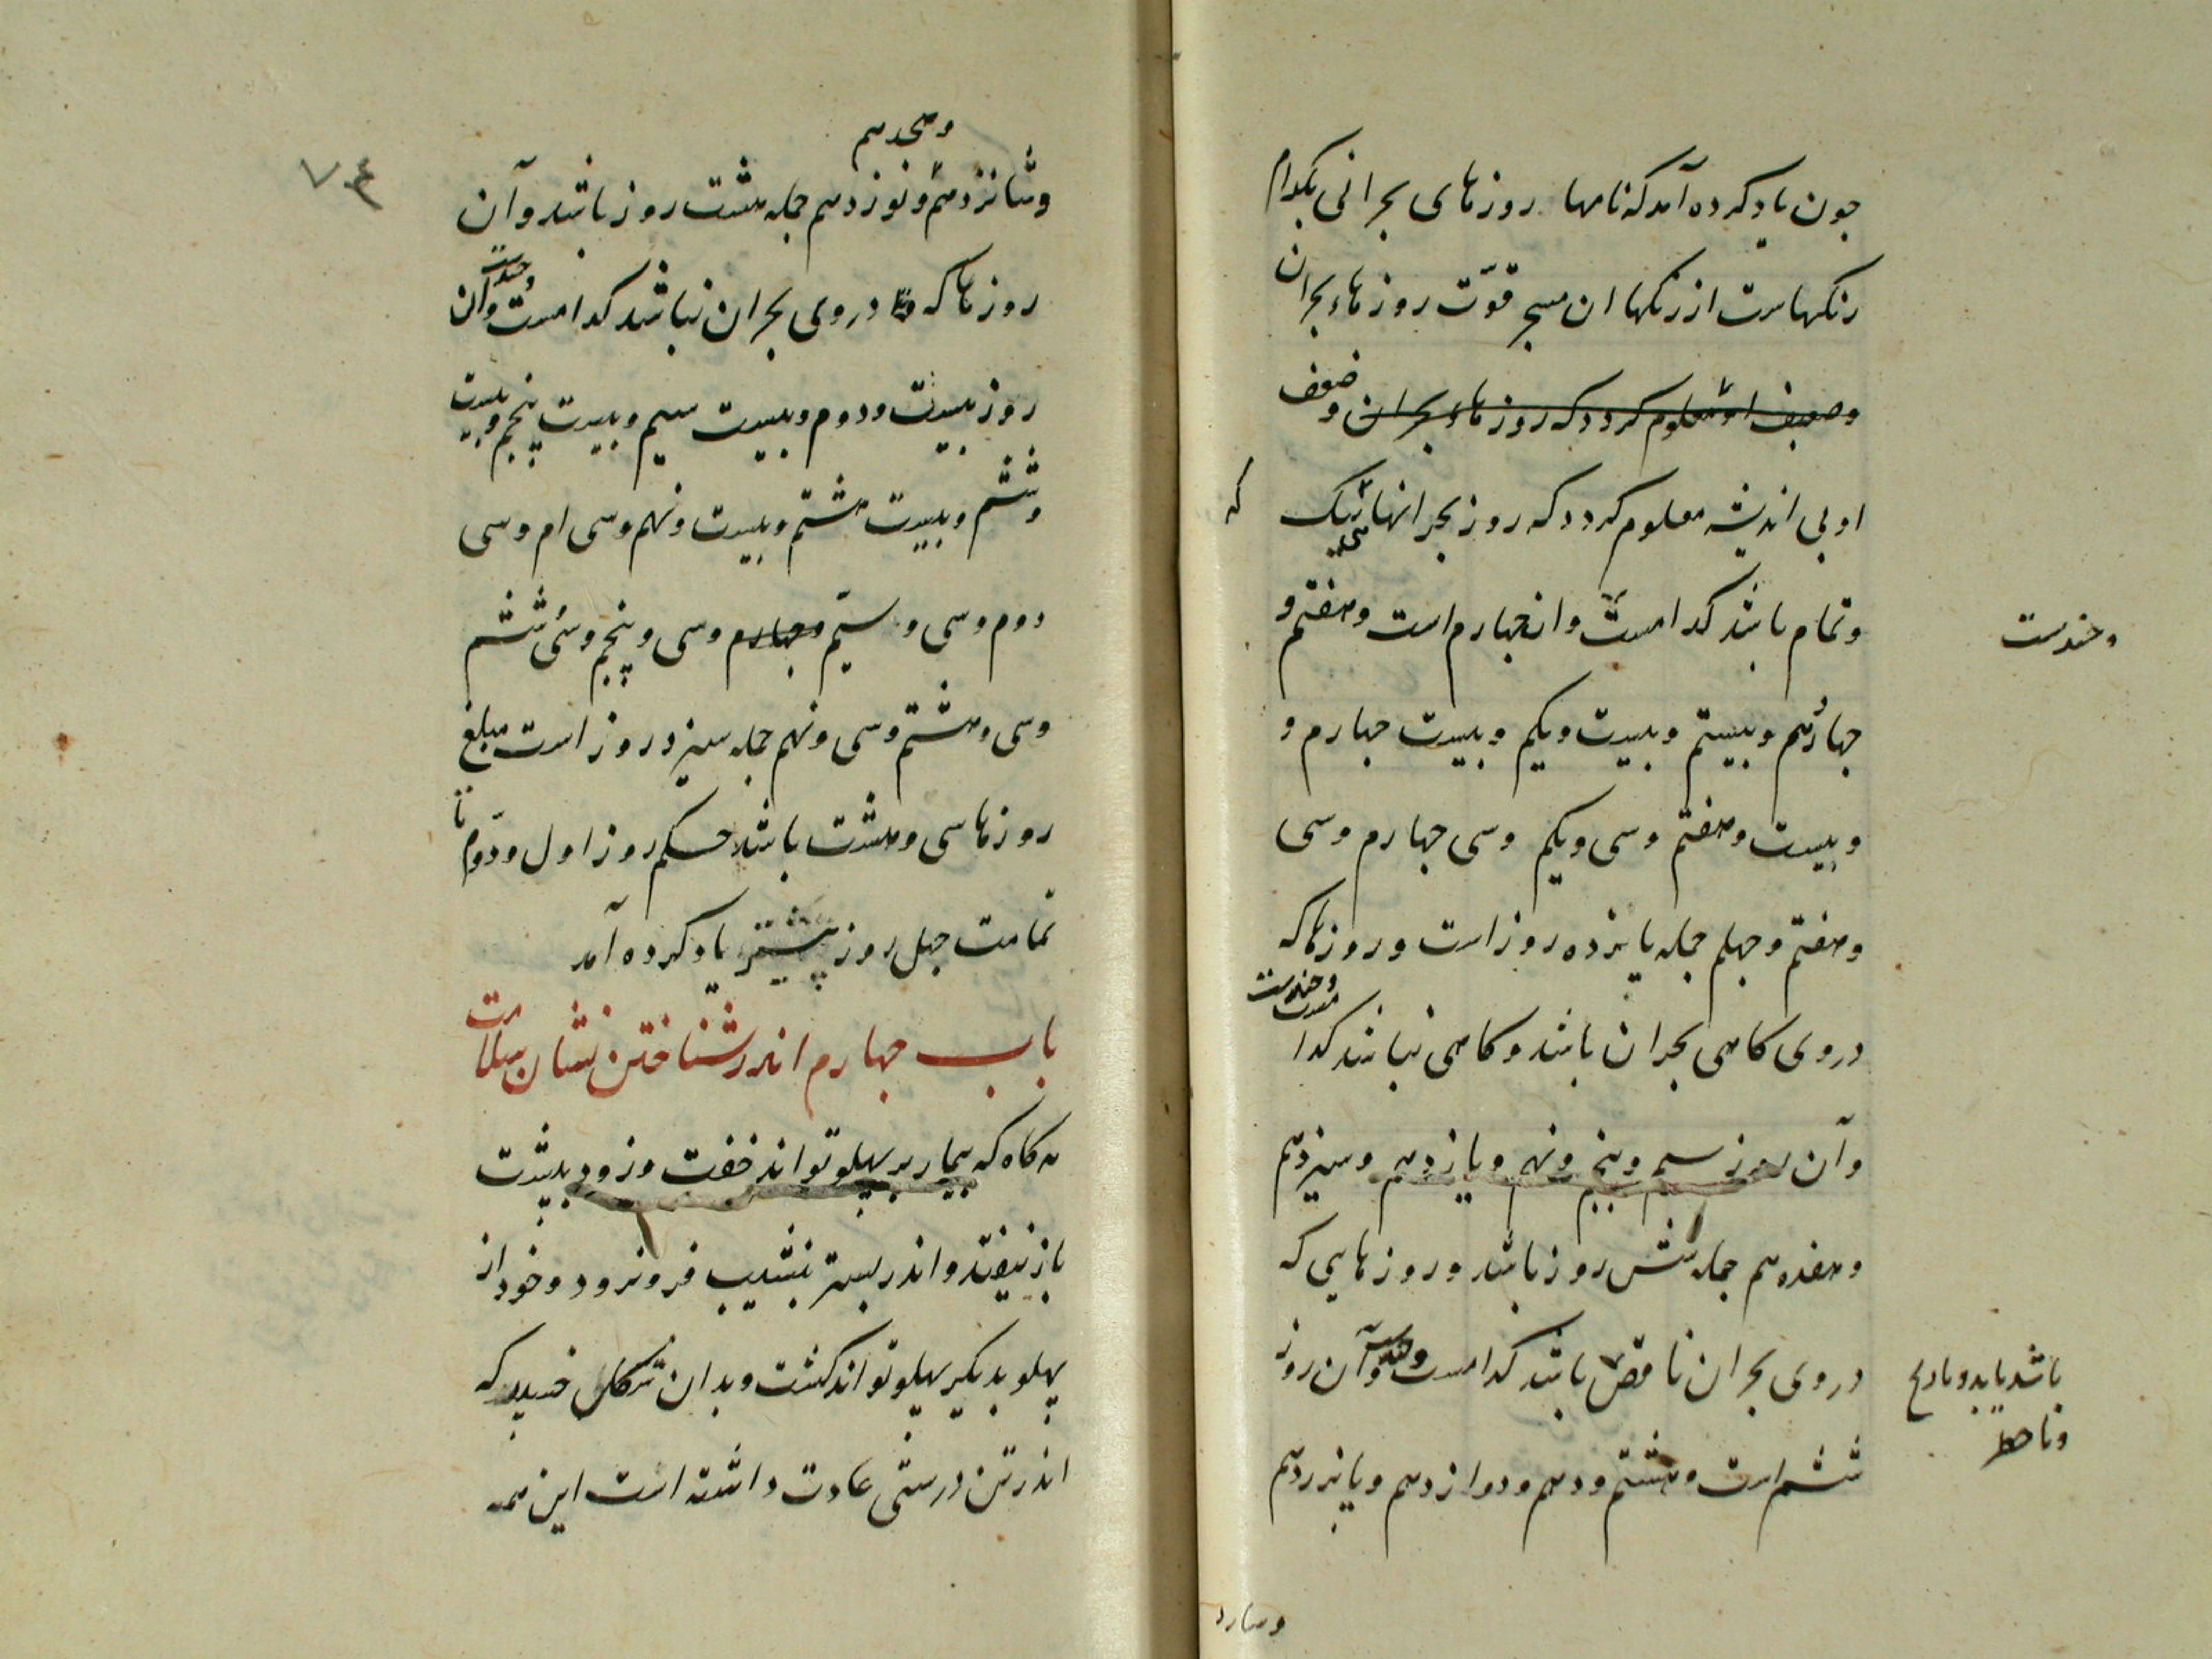 چون یاد کرده آمد که نامها روزهای بحرانی بکدام
رنکهاست از رنکها ان سبح قوّت روزهاء بحران
وضعیف او معلوم کردد که روزهاء بحران و ضعف
او بی اندیشه معلوم کردد که روز بحرانهاء نیک که
وتمام باشد کدامست وان چهارم است وهفتم و
وچندست
چهاردهم وبیستم وبیست ویکم وبیست چهارم و
وبیست وهفتم وسی ویکم وسی چهارم وسی
وهفتم وچهلم جمله پانزده روز است وروزها که
دروی کاهی بحران باشد وکاهی نباشد کدا
مست وچندست
وآن روز سیم وپنجم ونهم ویازدهم وسیزدهم
وهفدهم جمله شش روز باشد وروزهایی که
دروی بحران ناقص باشد کدامست وچندست وآن روز
باشد یا بد و
ششم است وهشتم ودهم ودوازدهم وپانزدهم
۷۴
وهجدهم
وشانزدهم ونوزدهم جمله هشت روز باشد وآن
روزها که دروی بحران نباشد کدامست وچندست وآن
روز بیست ودوم وبیست سیم وبیست پنجم وبیست
وششم وبیست هشتم وبیست ونهم وسی ام وسی
دوم وسی وسیّم وچهارم وسی وپنجم وسی ششم
وسی وهشتم وسی ونهم جمله سیزده روز است مبلغ
روزها سی وهشت باشد حکم روز اول ودوّم تا
تمامت چهل روز پیشتر یاد کرده آمد
باب چهارم اندر شناختن نشان سلامت
هرکاه که بیمار بر پهلو تواند خفت وزود بپشت
باز نیفتد واندر بستر بنشیب فرو نرود وخود از
پهلو بدیکر پهلو تواند کشت وبدان شکل خسبد که
اندر تن درستی عادت داشته است این همه